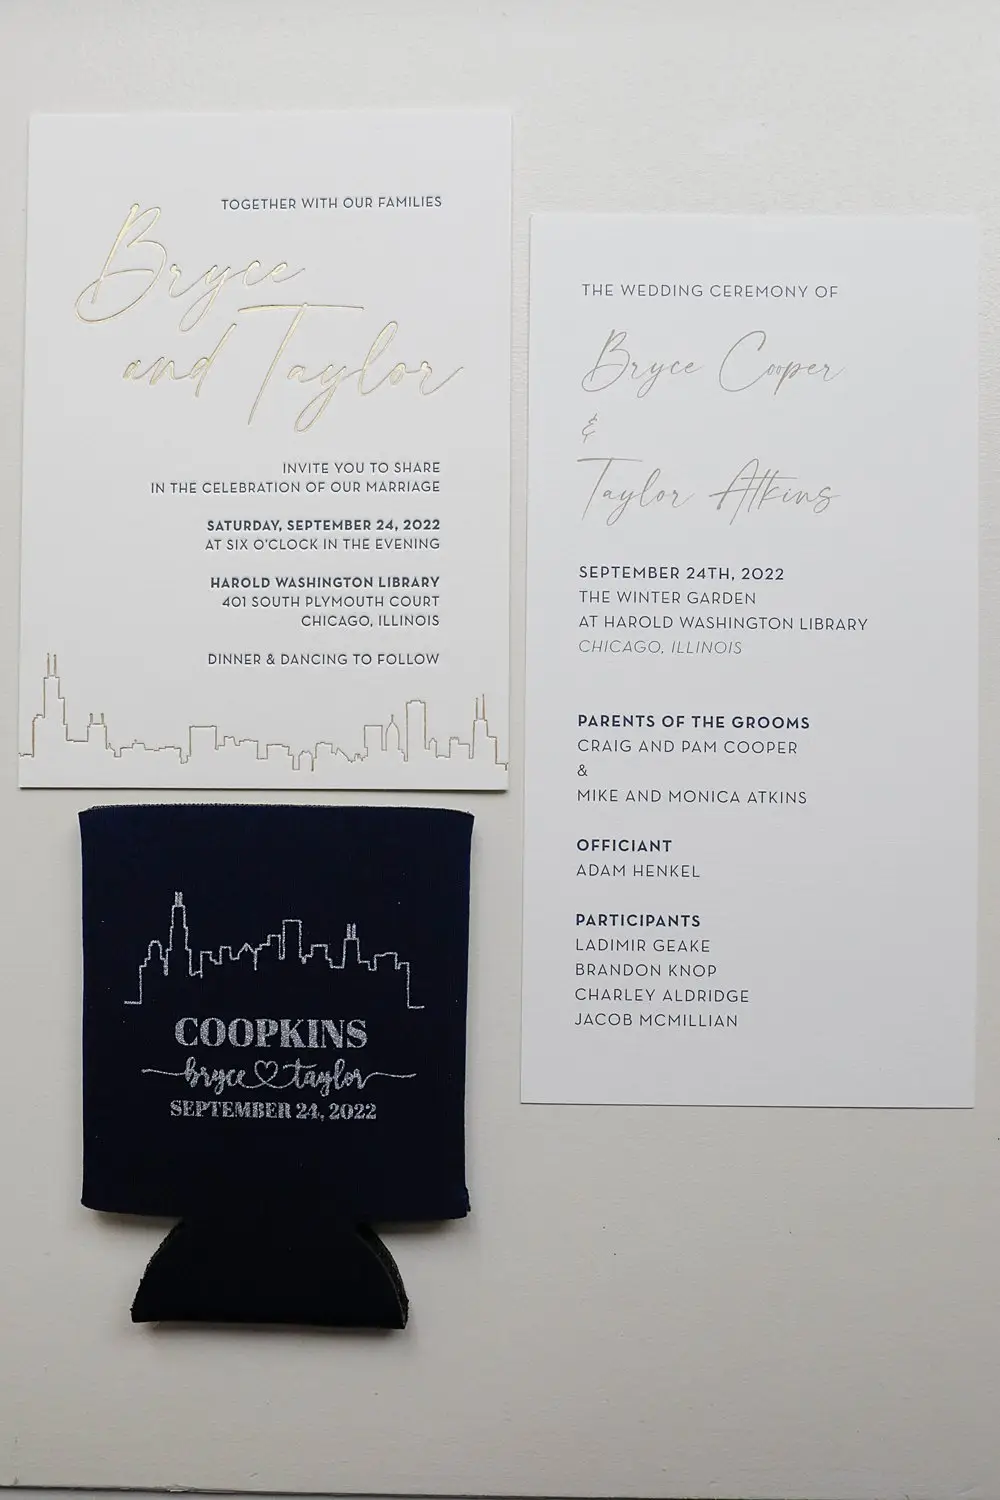 TOGETHER WITH OUR FAMILIES
Bryce
and Taylor
INVITE YOU TO SHARE
IN THE CELEBRATION OF OUR MARRIAGE
SATURDAY, SEPTEMBER 24, 2022
AT SIX O'CLOCK IN THE EVENING
HAROLD WASHINGTON LIBRARY
401 SOUTH PLYMOUTH COURT
CHICAGO, ILLINOIS
DINNER & DANCING TO FOLLOW
THE WEDDING CEREMONY OF
Bryce Cooper
&
Taylor Atkins
SEPTEMBER 24TH, 2022
THE WINTER GARDEN
AT HAROLD WASHINGTON LIBRARY
CHICAGO, ILLINOIS
PARENTS OF THE GROOMS
CRAIG AND PAM COOPER
&
MIKE AND MONICA ATKINS
OFFICIANT
ADAM HENKEL
PARTICIPANTS
LADIMIR GEAKE
BRANDON KNOP
CHARLEY ALDRIDGE
JACOB MCMILLIAN
COOPKINS
bryce taylor
SEPTEMBER 24, 2022